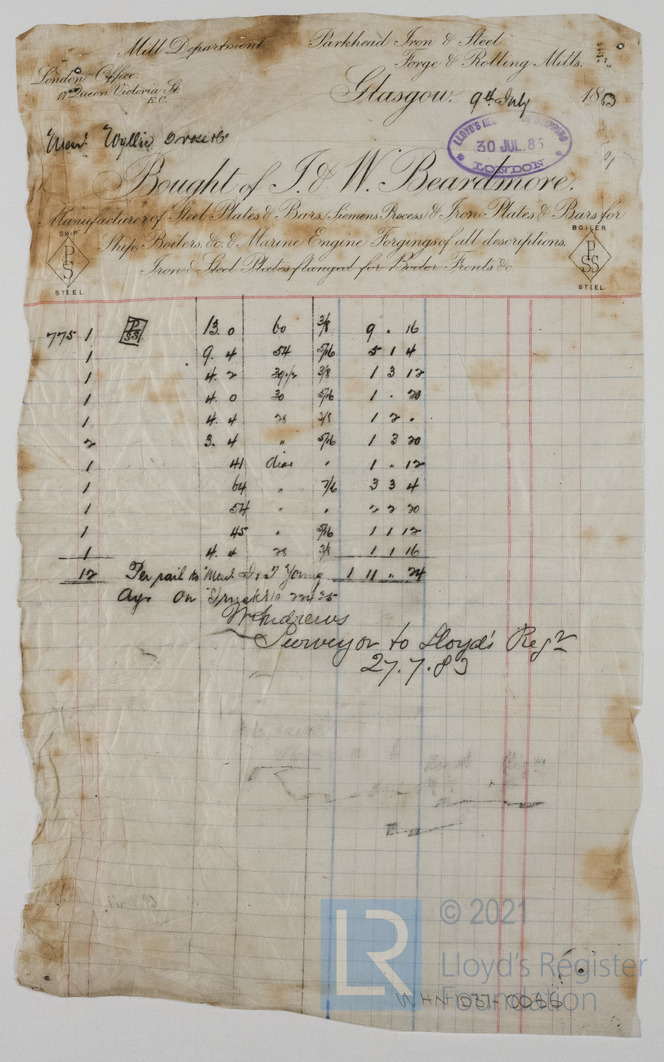 Mill Department Parkhead Iron & Steel
Forge & Rolling Mills.
London Office
Queen Victoria St
E.C.
Glasgow, 9th July 1883
LLOYD'S REGISTER SHIPPING
30 JUL. 83
LONDON
Messrs Wyllie
Bought of I. & W. Beardmore.
Manufacturer of Steel Plates & Bars, (Siemens Process) & Iron Plates & Bars for
Ship, Boilers, &c. & Marine Engine Forgings of all descriptions.
Iron & Steel Plates flanged for Boiler Fronts &c
SHIP
P
S
STEEL
BOILER
P
SS
STEEL
775 1 P SS 13. 0 60 3/8 9 . 16
1 9. 4 54 5/16 5 1 4
1 4. 2 39 1/2 3/8 1 3 12
1 4. 0 30 5/16 1 . 20
1 4. 4 28 3/8 1 2 .
2 3. 4 " 5/16 1 3 20
1 41 dia " 1 . 12
1 64 " 7/16 3 3 4
1 54 " " 2 2 20
1 45 " 5/16 1 1 12
1 4. 4 28 3/8 1 1 16
12 Per rail to Messrs Young 1 11 . 24
Ayr on
W Andrews
Surveyor to Lloyd's Regr
27.7.83
LR
© 2021
Lloyd's Register
Foundation
WHN-1037-0066